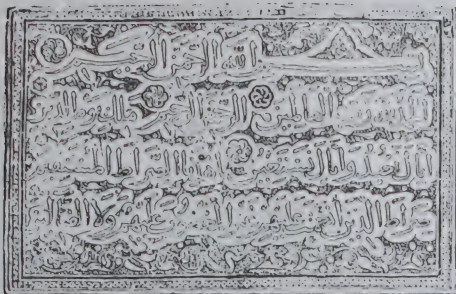 بسم الله الرحمن الرحيم
الحمد لله رب العالمين الرحمن الرحيم ملك يوم الدين
اياك نعبد واياك نستعين اهدنا الصراط المستقيم
صراط الذين انعمت عليهم غير المغضوب عليهم ولا الضالين